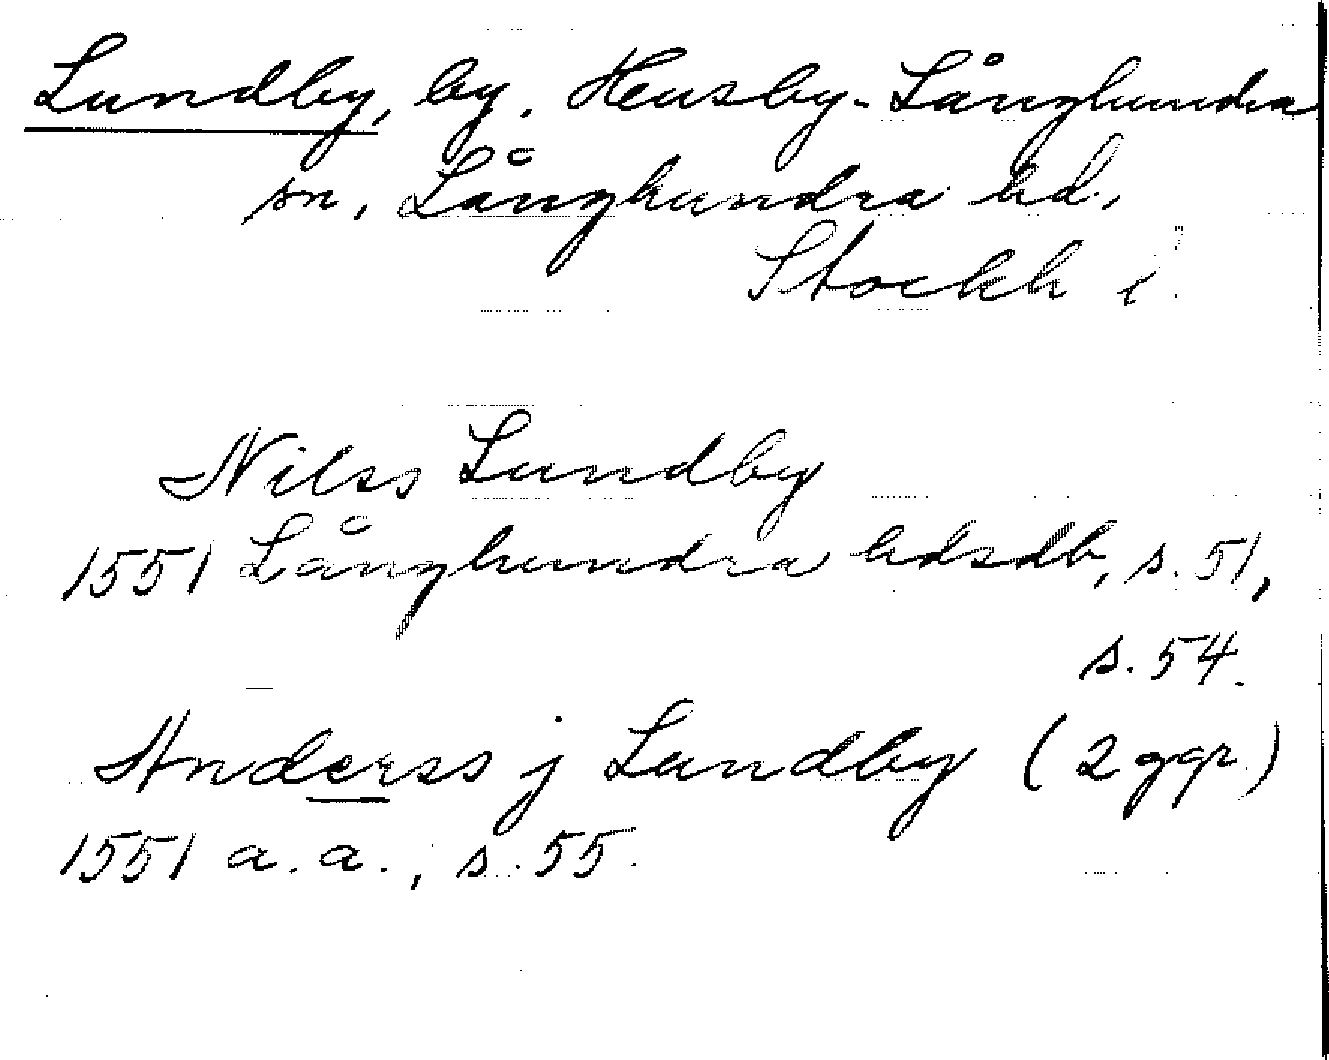 Lundby, by, Husby-Långhundra
sn, Långhundra hd,
Stockh l.
Nilss Lundby
1551 Långhundra hdsdb, s. 51,
s. 54.
Anderss j Lundby (2 ggr)
1551 a. a., s. 55.